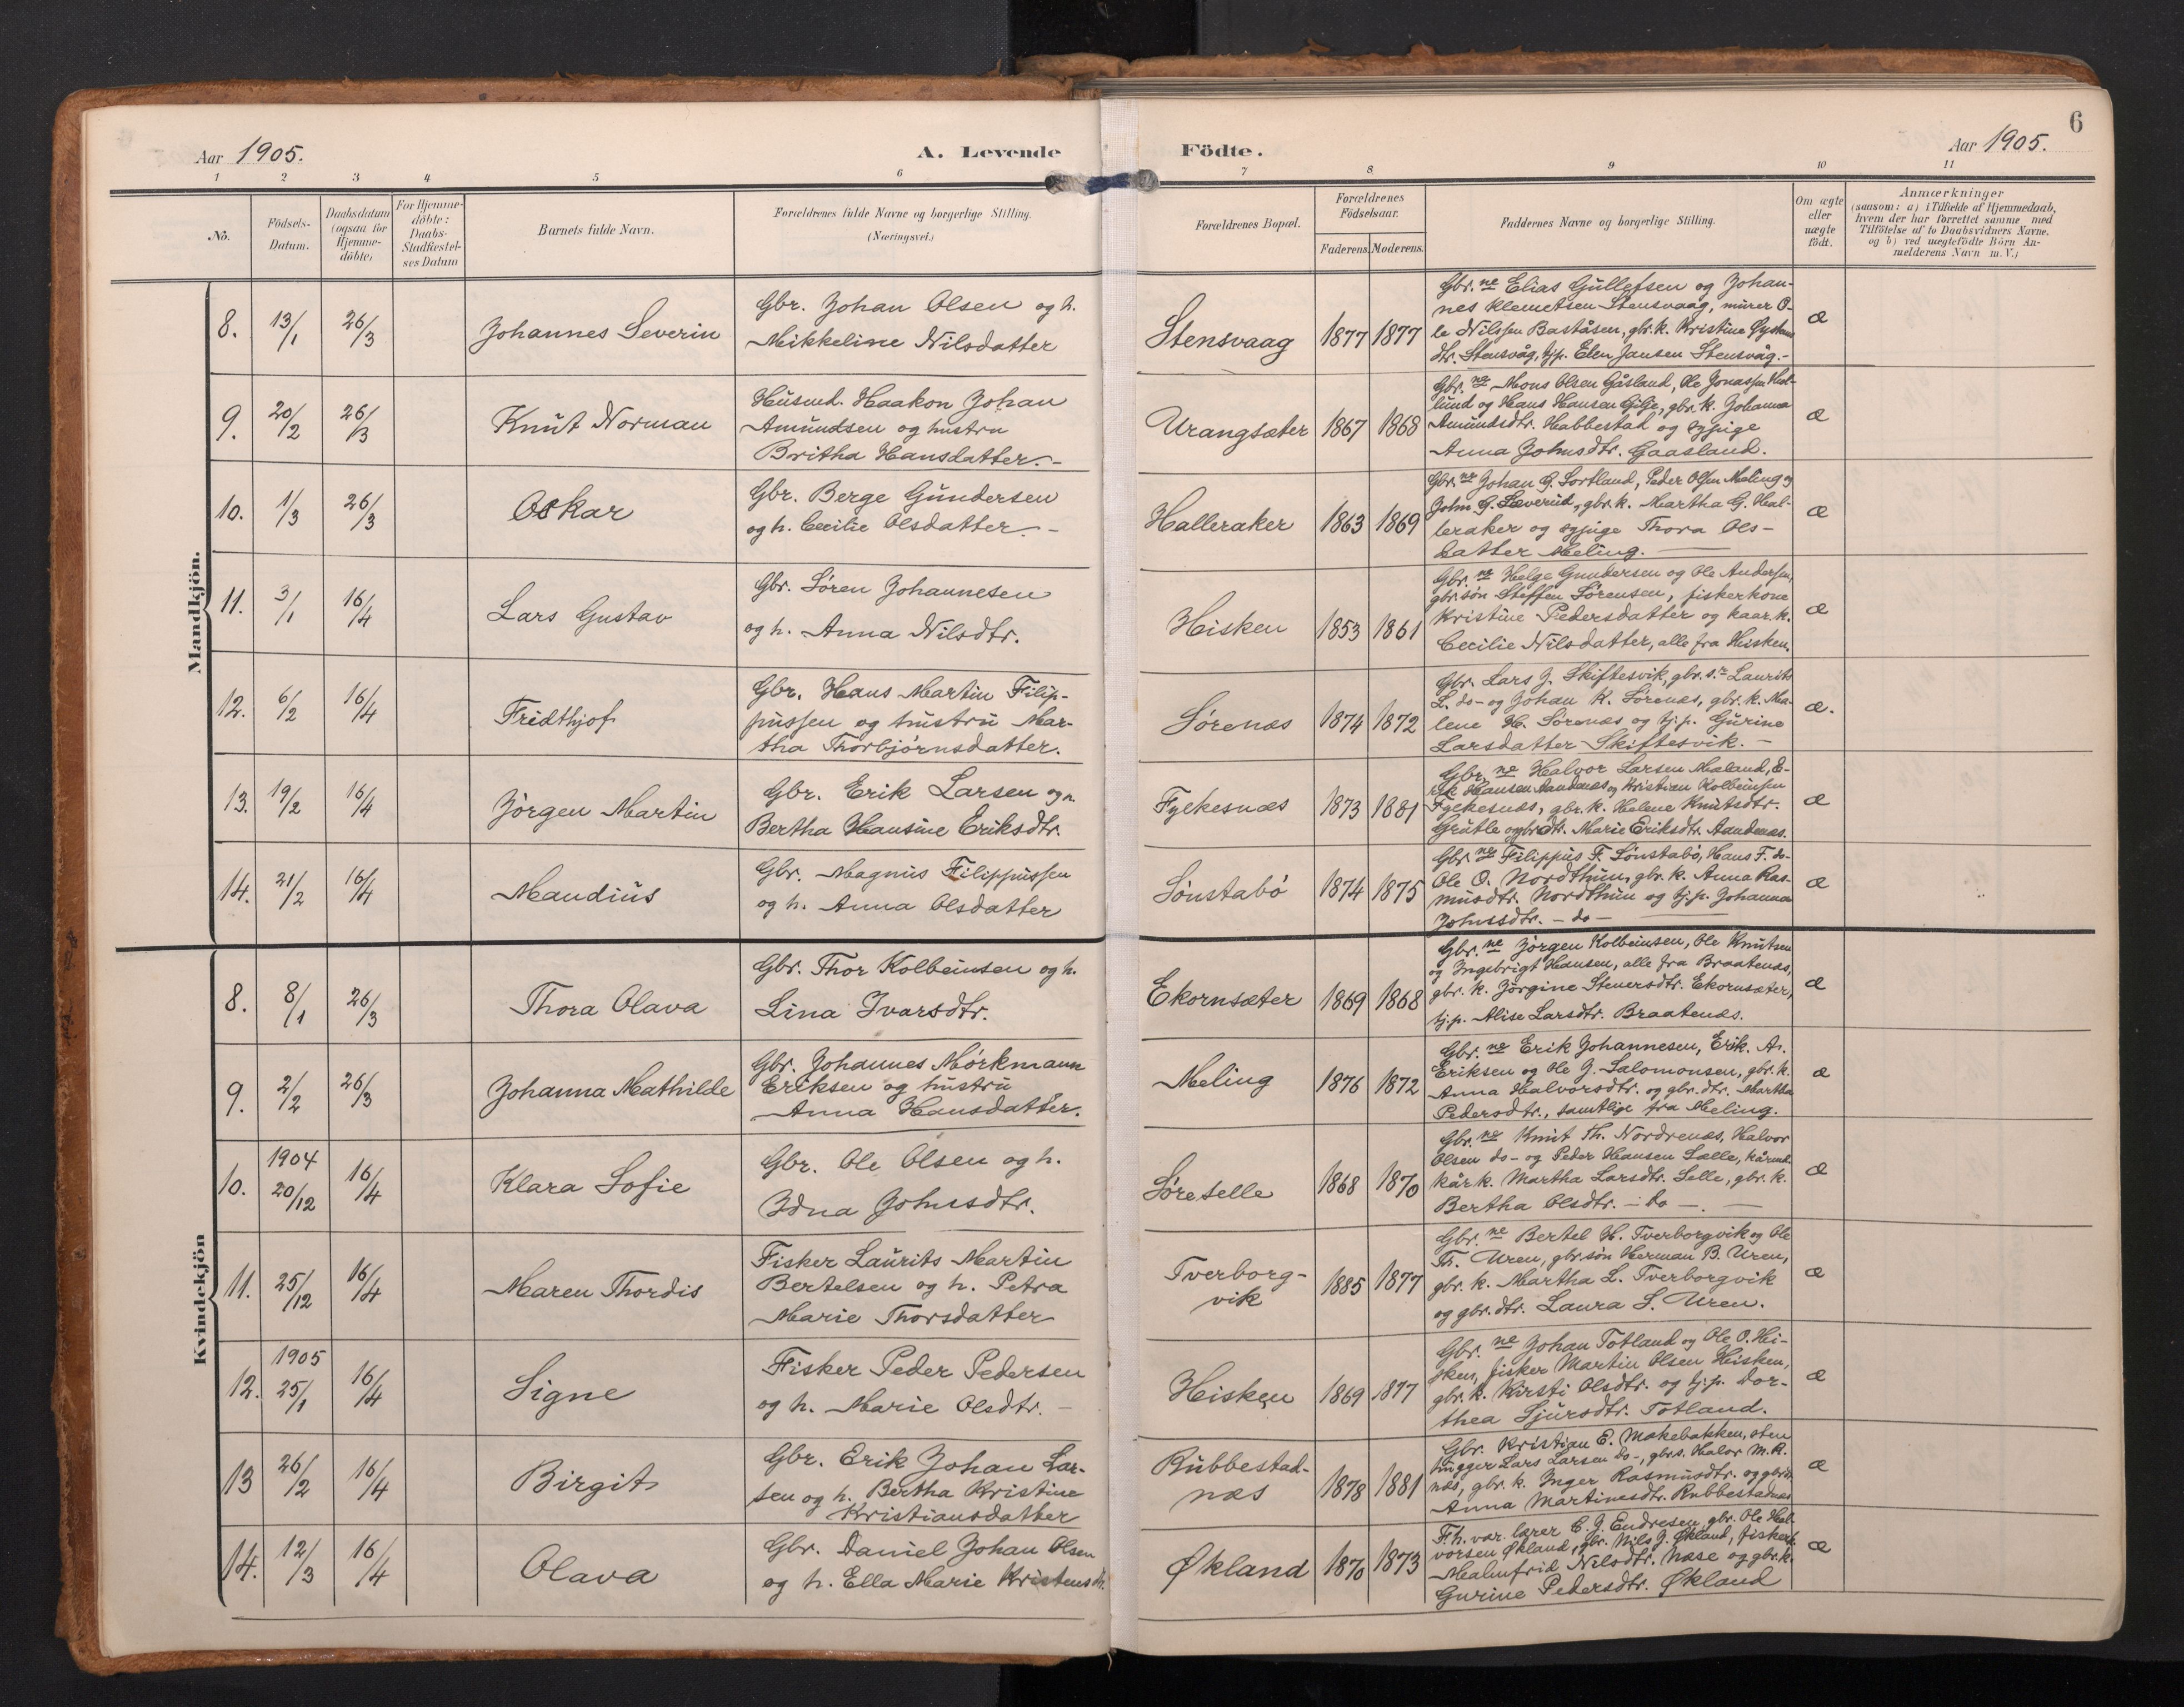 6
Aar 1905.
A. Levende
Födte.
Aar 1905.
1 2 3 4 5 6 7 8 9 10 11
No.
Födsels-
Datum.
Daabsdatum
(ogsaa for
Hjemme-
döbte)
For Hjemme-
döbte:
Daabs-
Stadfæstel-
ses Datum
Barnets fulde Navn.
Forældrenes fulde Navne og borgerlige Stilling.
(Næringsvei.)
Forældrenes Bopæl.
Forældrenes
Födselsaar.
Faderens. Moderens.
Faddernes Navne og borgerlige Stilling.
Om ægte
eller
uægte
födt.
Anmærkninger
(saasom: a) i Tilfælde af Hjemmedaab,
hvem der har forrettet samme, med
Tilföielse af to Daabsvidners Navne.
og b) ved uægtefödte Börn An-
melderens Navn m. V.)
Mandkjön.
8. 13/1 26/3 Johannes Severin
Gbr. Johan Olsen og h.
Mikkeline Nilsdatter
Stensvaag 1877 1877
Gbr.ne Elias Gullefsen og Johan-
nes Klemetsen Stensvaag, murer O-
le Nilssen Baståsen, gbr.k. Kristine
dtr. Stensvåg, tj.p. Elen Jansen Stensvåg.-
æ
9. 20/2 26/3 Knut Norman
Husmd. Haakon Johan
Amundsen og hustru
Britha Hansdatter.-
Urangsæter 1867 1868
Gbr.ne Mons Olsen Gåsland, Ole Jonassen Hal-
lund og Hans Hansen Gilje, gbr.k. Johanna
Amundsdtr. Habbestad og sypige
Anna Johnsdtr. Gaasland.
æ
10. 1/3 26/3 Oskar
Gbr. Berge Gundersen
og h. Cecilie Olsdatter.-
Halleraker 1863 1869
Gbr.ne Johan G. Sortland, Peder Olsen Meling og
John G. Sæverud, gbr.k. Martha G. Hal-
leraker og sypige Thora Ols-
datter Meling.
æ
11. 3/1 16/4 Lars Gustav
Gbr. Søren Johannesen
og h. Anna Nilsdtr.
Hisken 1853 1861
Gbr.ne Helge Gundersen og Ole Andersen,
gbr.søn Steffen Sørensen, fiskerkone
Kristine Pedersdatter og kaar.k.
Cecilie Nilsdatter, alle fra Hisken.
æ
12. 6/2 16/4 Fridthjof
Gbr. Hans Martin Filip-
pussen og hustru Mar-
tha Thorbjørnsdatter.
Sørenæs 1874 1872
Gbr. Lars J. Skiftesvik, gbr.s. Laurits
L. do- og Johan K. Sørenæs, gbr.k. Ma-
lene H. Sørenæs og tj.p. Gurine
Larsdatter Skiftesvik.-
æ.
13. 19/2 16/4 Jörgen Martin
Gbr. Erik Larsen og h.
Bertha Hansine Eriksdtr.
Fylkesnæs 1873 1881
Gbr.ne Halvor Larsen Mæland, E-
rik Hansen Aandenæs og Kristian Kolbeinsen
Fylkesnæs, gbr.k. Helene Knutsdtr.
Grutle og gbr.dtr. Marie Eriksdtr. Aandenæs.
æ
14. 21/2 16/4 Mandius
Gbr. Magnus Filippussen
og h. Anna Olsdatter
Sönstabö 1874 1875
Gbr.ne Filippus F. Sönstabö, Hans F. do-
Ole O. Nordthun, gbr.k. Anna Ras-
musdtr. Nordthun og tj.p. Johanna
Johnsdtr. - do -
æ
Kvindekjön
8. 8/1 26/3 Thora Olava
Gbr. Thor Kolbeinsen og h.
Lina Ivarsdtr.
Ekornsæter 1869 1868
Gbr.ne Jörgen Kolbeinsen, Ole Knutsen
og Ingebrigt Hansen, alle fra Braatenæs,
gbr.k. Jörgine Steuersdtr. Ekornsæter,
tj.p. Alise Larsdtr. Braatenæs.
æ
9. 2/2 26/3 Johanna Mathilde
Gbr. Johannes Mørkmann
Eriksen og hustru
Anna Hansdatter.
Meling 1876 1872
Gbr.ne Erik Johannesen, Erik A.
Eriksen og Ole J. Salomonsen, gbr.k.
Anna Halvorsdtr. og gbr.dtr. Martha
Pedersdtr., samtlige fra Meling.
æ
10. 1904 20/12 16/4 Klara Sofie
Gbr. Ole Olsen og h.
Idna Johnsdtr.
Søreselle 1868 1870
Gbr.ne Knut Th. Nordrenæs, Halvor
Olsen do- og Peder Hansen Sælle, kårmd.
kår.k. Martha Larsdtr. Selle, gbr.k.
Bertha Olsdtr. - do -
æ
11. 25/12 16/4 Maren Thordis
Fisker Laurits Martin
Bertelsen og h. Petra
Marie Thorsdatter
Tverborg-
vik 1885 1877
Gbr.ne Bertel H. Tverborgvik og Ole
Th. Uren, gbr.søn Herman B. Uren,
gbr.k. Martha L. Tverborgvik
og gbr.dtr. Laura S. Uren.
æ
12. 1905 25/1 16/4 Signe
Fisker Peder Pedersen
og h. Marie Olsdtr.-
Hisken 1869 1877
Gbr.ne Johan Totland og Ole O. Hi-
sken, fisker Martin Olsen Hisken,
gbr.k. Kirsti Olsdtr. og tj.p. Dor-
thea Sjursdtr. Totland.
æ
13 26/2 16/4 Birgit
Gbr. Erik Johan Lar-
sen og h. Bertha Kristine
Kristiansdatter
Rubbestad-
næs 1878 1881
Gbr. Kristian E. Mokebakken, sten
hugger Lars Larsen do-, gbr.s. Halvor M. R.
næs, gbr.k. Inger Rasmusdtr. og gbr.dt.
Anna Martinesdtr. Rubbestadnæs
æ
14. 12/3 16/4 Olava
Gbr. Daniel Johan Olsen
og h. Ella Marie Kristensdtr.
Økland 1870 1873
F.h.v. lærer C. J. Endresen, gbr. Ole Hal-
vorsen Økland, gbr. Nils J. Økland, fisker
Malmfrid Nilsdtr. Næse og gbr.k.
Gurine Pedersdtr. Økland
æ